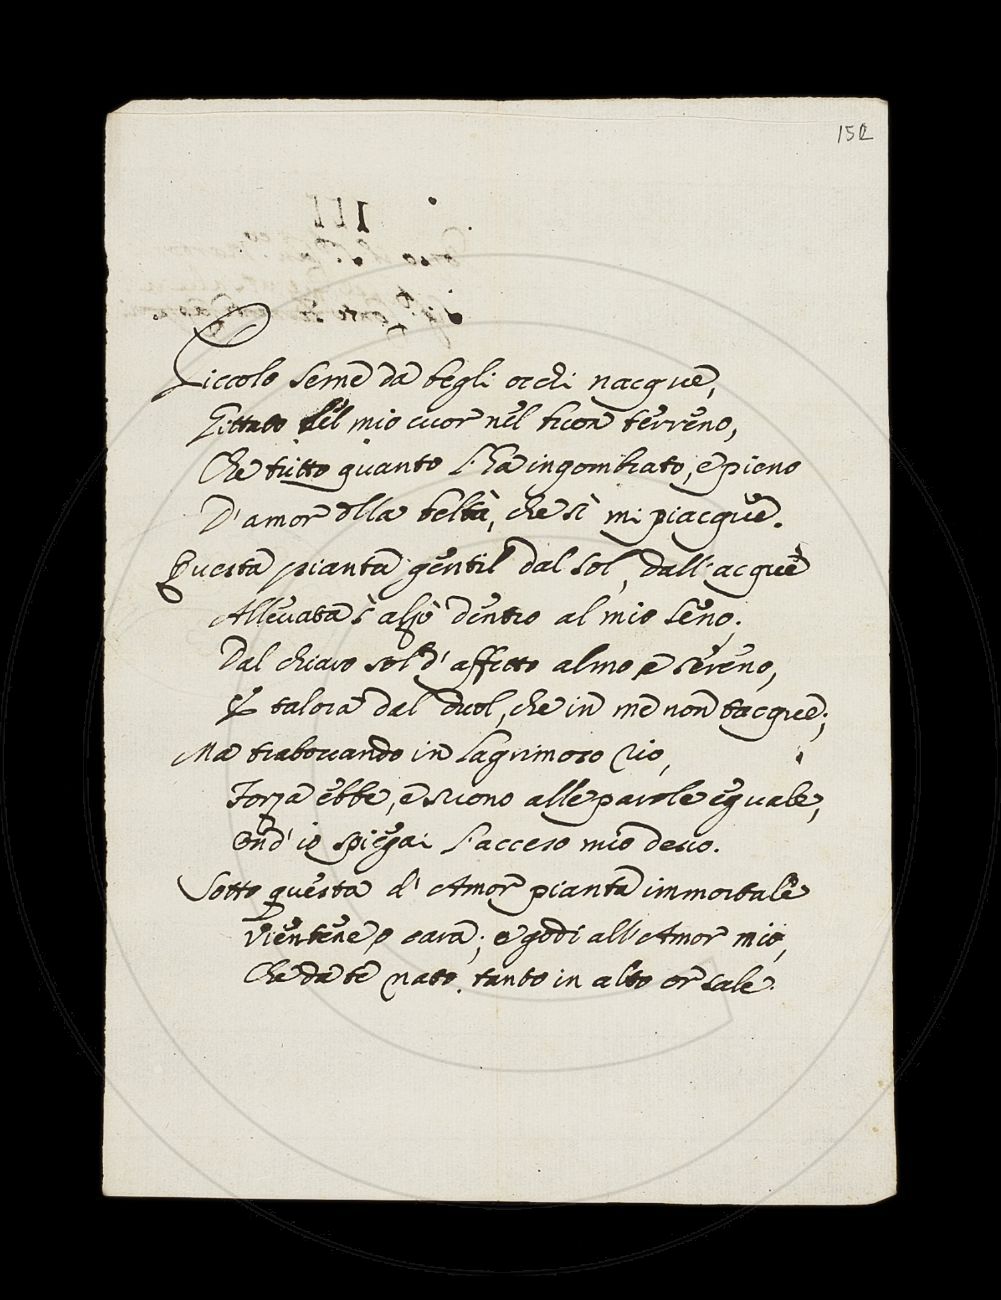 152
III
Piccolo seme da begli occhi nacque,
Gittato del mio cuor nel ticon terreno,
Che tutto quanto l'ha ingombrato, e pieno
D'amor d'lla beltà, che sì mi piacque.
Questa pianta gentil dal sol, dall'acque
Allevata s'alzò dentro al mio seno;
Dal chiaro sol d'affetto almo e sereno,
E talora dal duol, che in me non tacque;
Ma traboccando in lagrimoso rio,
Forza ebbe, e suono alle parole eguale,
Ond'io spiegai l'acceso mio desio.
Sotto questa d'Amor pianta immortale
Vientene o cara; e godi all'Amor mio,
Che da te nato, tanto in alto or sale.